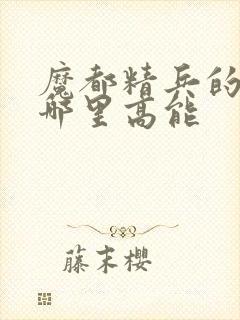 魔都精兵的
那里高能
藤末樱